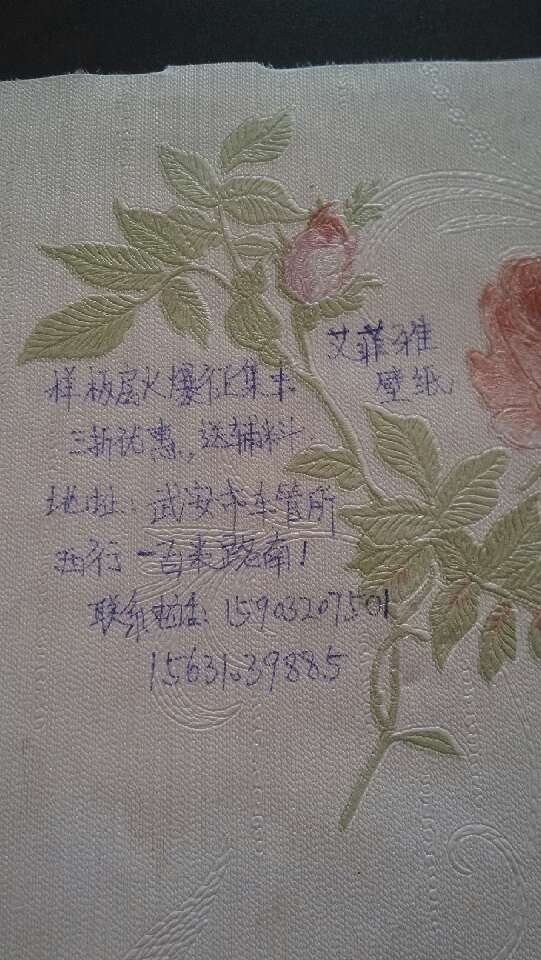 艾菲雅
壁纸
样板房火爆征集中
三折优惠,送辅料
地址:武安市车管所
西行一百米路南!
联系电话:15903207501
15631039885